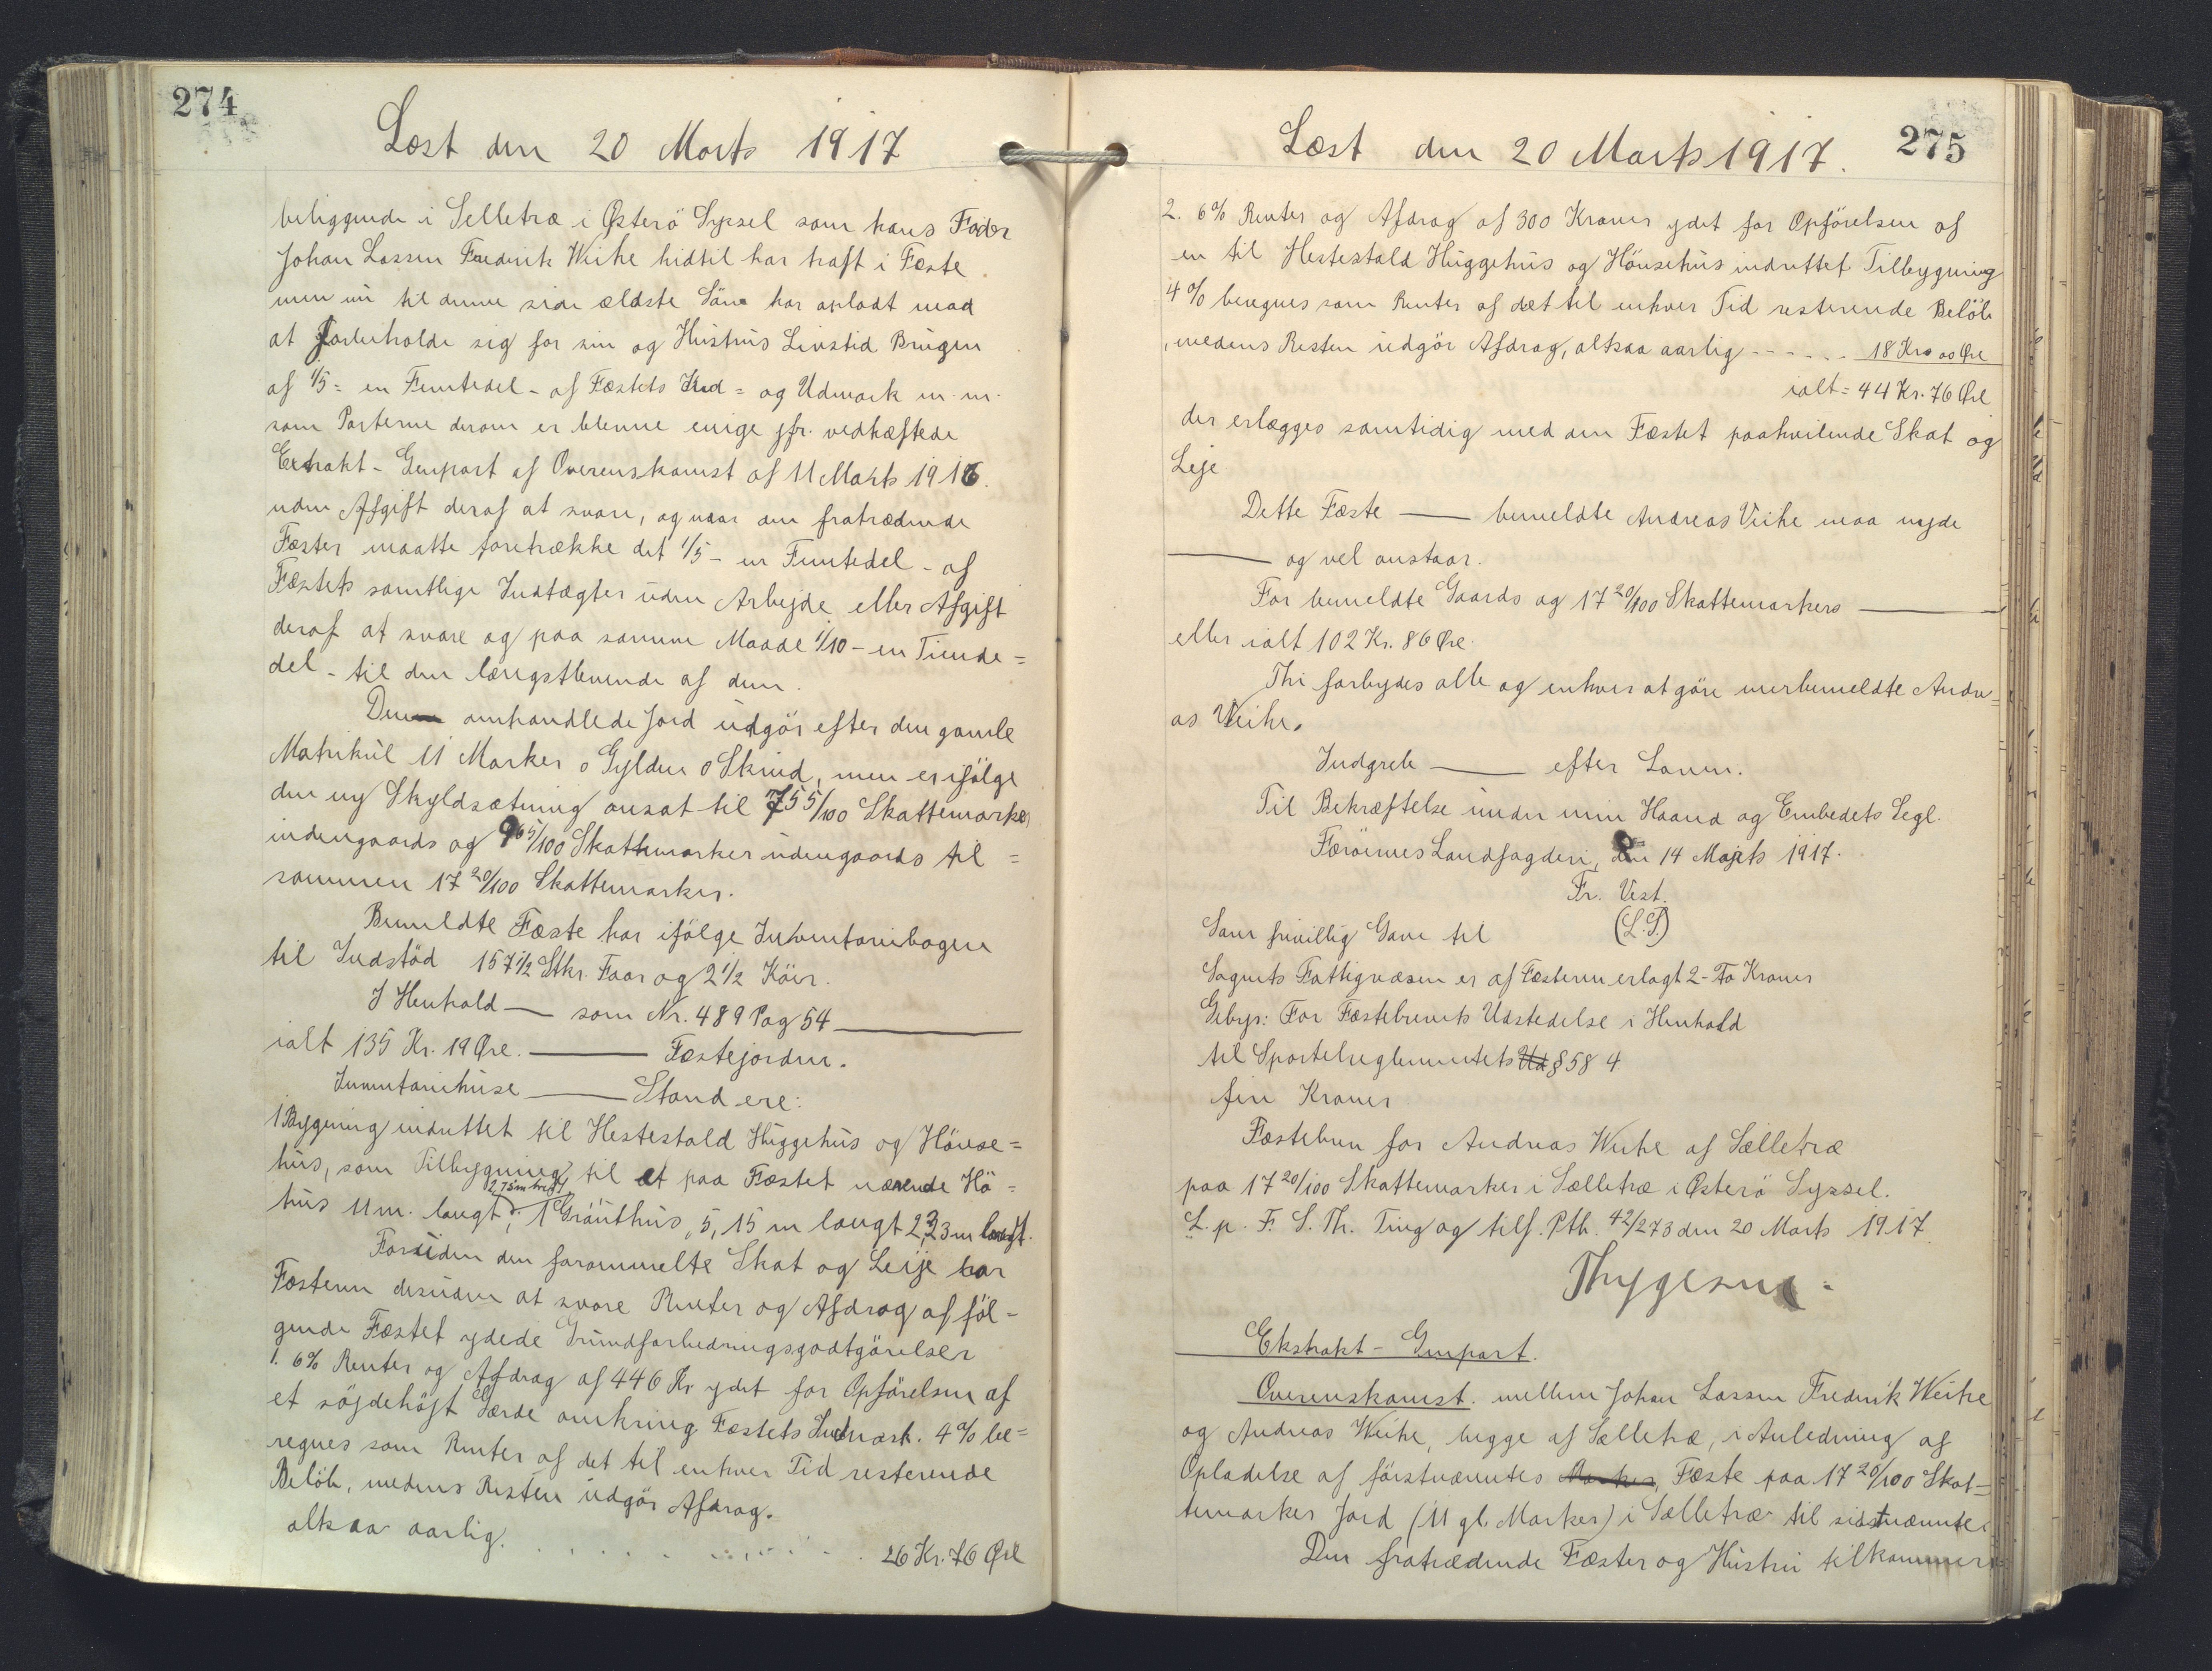 274
Læst den 20 Marts 1917
beliggende i Selletræ i Østerö Syssel som hans Fader
Johan Lassen Frederik Weihe hidtil har haft i Fæste
men nu til denne sin ældste Sön har opladt mod
at forbeholde sig for sin og Hustrus Livstid Brugen
af 1/5 = en Femtedel - af Fæstets Ind = og Udmark m.m.
som Parterne derom er blevne enige jfr. vedhæftede
Extrakt - Genpart af Overenskomst af 11 Marts 1916.
uden Afgift deraf at svare, og naar den fratrædende
Fæster maatte foretrække det 1/5 - en Femtedel - af
Fæstets samtlige Indtægter uden Arbejde eller Afgift
deraf at svare og paa samme Maade 1/10 - en Tiende =
del - til den længstlevende af dem.
Den omhandlede Jord udgör efter den gamle
Matrikul 11 Marker 0 Gylden 0 Skind, men er ifölge
den ny Skyldsætning ansat til 7 55/100 Skattemarker
indengaards og 9 65/100 Skattemarker udengaards til =
sammen 17 20/100 Skattemarker.
Bemeldte Fæste har ifölge Inventariebogen
til Indstöd 157 1/2 Stkr. Faar og 2 1/2 Köer.
I Henhold — som Nr. 489 Pag 54 —
ialt 135 Kr. 19 Øre. — Fæstejorden.
Inventariehuse — Stand ere:
1 Bygning indrettet til Hestestald Huggehus og Hönse =
hus, som Tilbygning til et paa Fæstet værende Hö =
2,75 m bredt
hus 11 m. langt, 1 Gröuthus, 5,15 m langt 2,23 m
Foruden den forommelte Skat og Leije har
Fæsteren desuden at svare Renter og Afdrag af föl =
gende Fæstet ydede Grundforbedringsgodtgörelser
1. 6% Renter og Afdrag af 446 Kr ydet for Opförelsen af
et söjdehöjt Gærde omkring Fæstets Indmark. 4% be =
regnes som Renter af det til enhver Tid resterende
Belöb, medens Resten udgör Afdrag.
altsaa aarlig. . . . . . . . . 26 Kr. 76 Øre
275
Læst den 20 Marts 1917.
2. 6% Renter og Afdrag af 300 Kroner ydet for Opförelsen af
en til Hestestald Huggehus og Hönsehus indrettet Tilbygning
4% beregnes som Renter af det til enhver Tid resterende Belöb
, medens Resten udgör Afdrag, altsaa aarlig - - - . . . 18 Kr 00 Øre
ialt = 44 Kr. 76 Øre
der erlægges samtidig med den Fæstet paahvilende Skat og
Leje
Dette Fæste — bemeldte Andreas Veihe maa nyde
— og vel anstaar.
For bemeldte Gaards og 17 20/100 Skattemarkers —
eller ialt 102 Kr. 86 Øre.
Thi forbydes alle og enhver at göre merbemeldte Andre =
as Weihe.
Indgreb — efter Loven.
Til Bekræftelse under min Haand og Embedets Segl.
Færöernes Landfogderi, den 14 Marts 1917.
Fr. Vest.
Som frivillig Gave til (L.S.)
Sognets Fattigvæsen er af Fæsteren erlagt 2 - To Kroner
Gebyr: For Fæstebrevets Udstedelse i Henhold
til Sportelreglementets § 58 4
fire Kroner
Fæstebrev for Andreas Weihe af Sælletræ
paa 17 20/100 Skattemarker i Sælletræ i Østerö Syssel.
L. p. F. S. Th. Ting og tilf. Ptb. 42/273 den 20 Marts 1917.
Thygesen =
Ekstrakt - Genpart.
Overenskomst. mellem Johan Lassen Fredrik Weihe
og Andreas Weihe, begge af Sælletræ, i Anledning af
Opladelse af förstnævntes Marker, Fæste paa 17 20/100 Skat =
temarker Jord (11 gl. Marker) i Sælletræ til sidstnævnte.
Den fratrædende Fæster og Hustru tilkommer